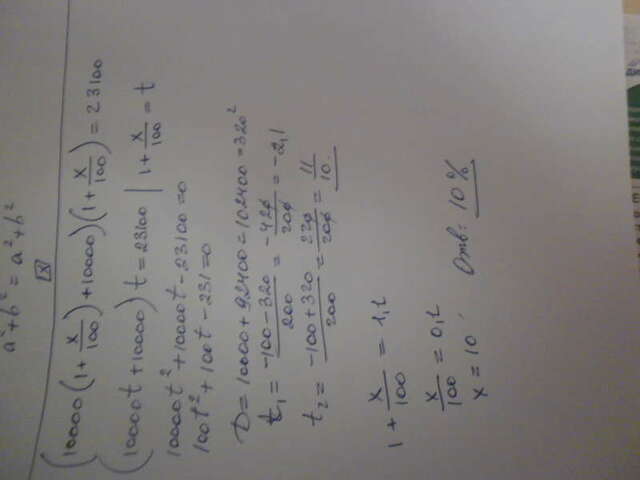 a²+b² = a²+b²
x
(10000(1+x/100)+10000)(1+x/100)=23100
(10000t+10000)t=23100 | 1+x/100=t
10000t²+10000t-23100=0
100t²+100t-231=0
D=10000+92400=102400=320²
t₁=(-100-320)/200=-420/200=-2,1
t₂=(-100+320)/200=220/200=11/10.
1+x/100=1,1
x/100=0,1
x=10, Отв: 10%